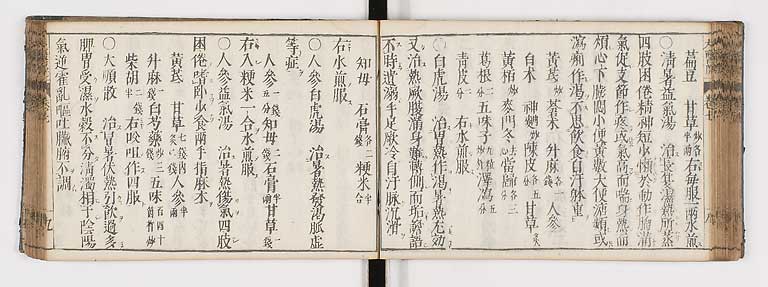 萹豆　甘草　右毎服二兩水煎
○清暑益氣湯　治長夏濕熱所蒸
四肢困倦精神短少懶於動作胸滿
氣促支節作疼或氣高而喘身熱而
煩心下脹悶小便黃數大便溏頻或
瀉痢作渴不思飲食自汗躰重
黃芪　蒼朮　升麻　各一　人參
白朮　神麴炒　陳皮　各五分　甘草炙
黃栢炒　麥門冬　當歸　各三分
葛根二分　五味子　澤瀉五分
青皮二分　右水煎服
○白虎湯　治暑熱作渴暑熱無効
又治熱厥腹滿身難轉側面垢譫語
不時遺溺手足厥冷自汗脉沉滑
知母　石膏　粳米
右水煎服
○人參白虎湯　治暑熱發渴脉虛
等症
人參　知母　石膏　甘草
右入粳米一合水煎服
○人參益氣湯　治暑熱傷氣四肢
困倦嗜卧少食兩手指麻木
黃芪　甘草　人參
升麻　白芍藥　五味
柴胡　右㕮咀作四服
○大順散　治冒暑伏熱引飲過多
脾胃受濕水穀不分清濁相干陰陽
氣逆霍亂嘔吐臟腑不調